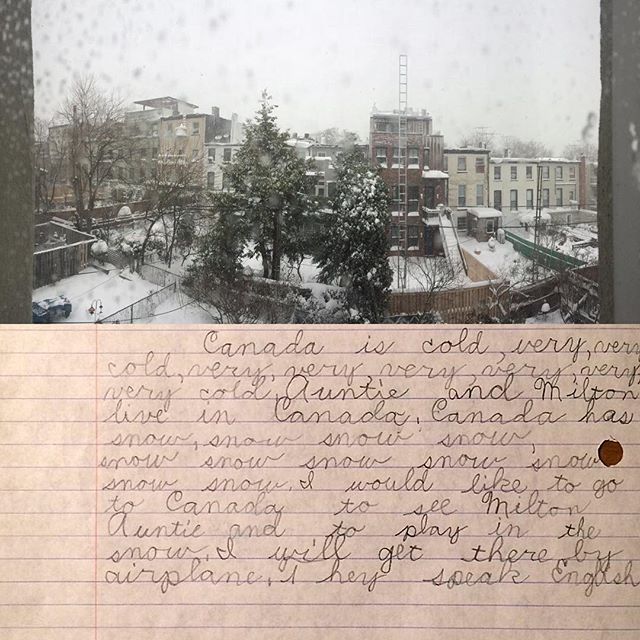 Canada is cold, very, very
cold, very, very very very, very
very cold, Auntie and Milton
live in Canada, Canada has
snow, snow snow snow,
snow snow snow snow snow
snow snow. I would like to go
to Canada to see Milton
Auntie and to play in the
snow. I will get there by
airplane. they speak English